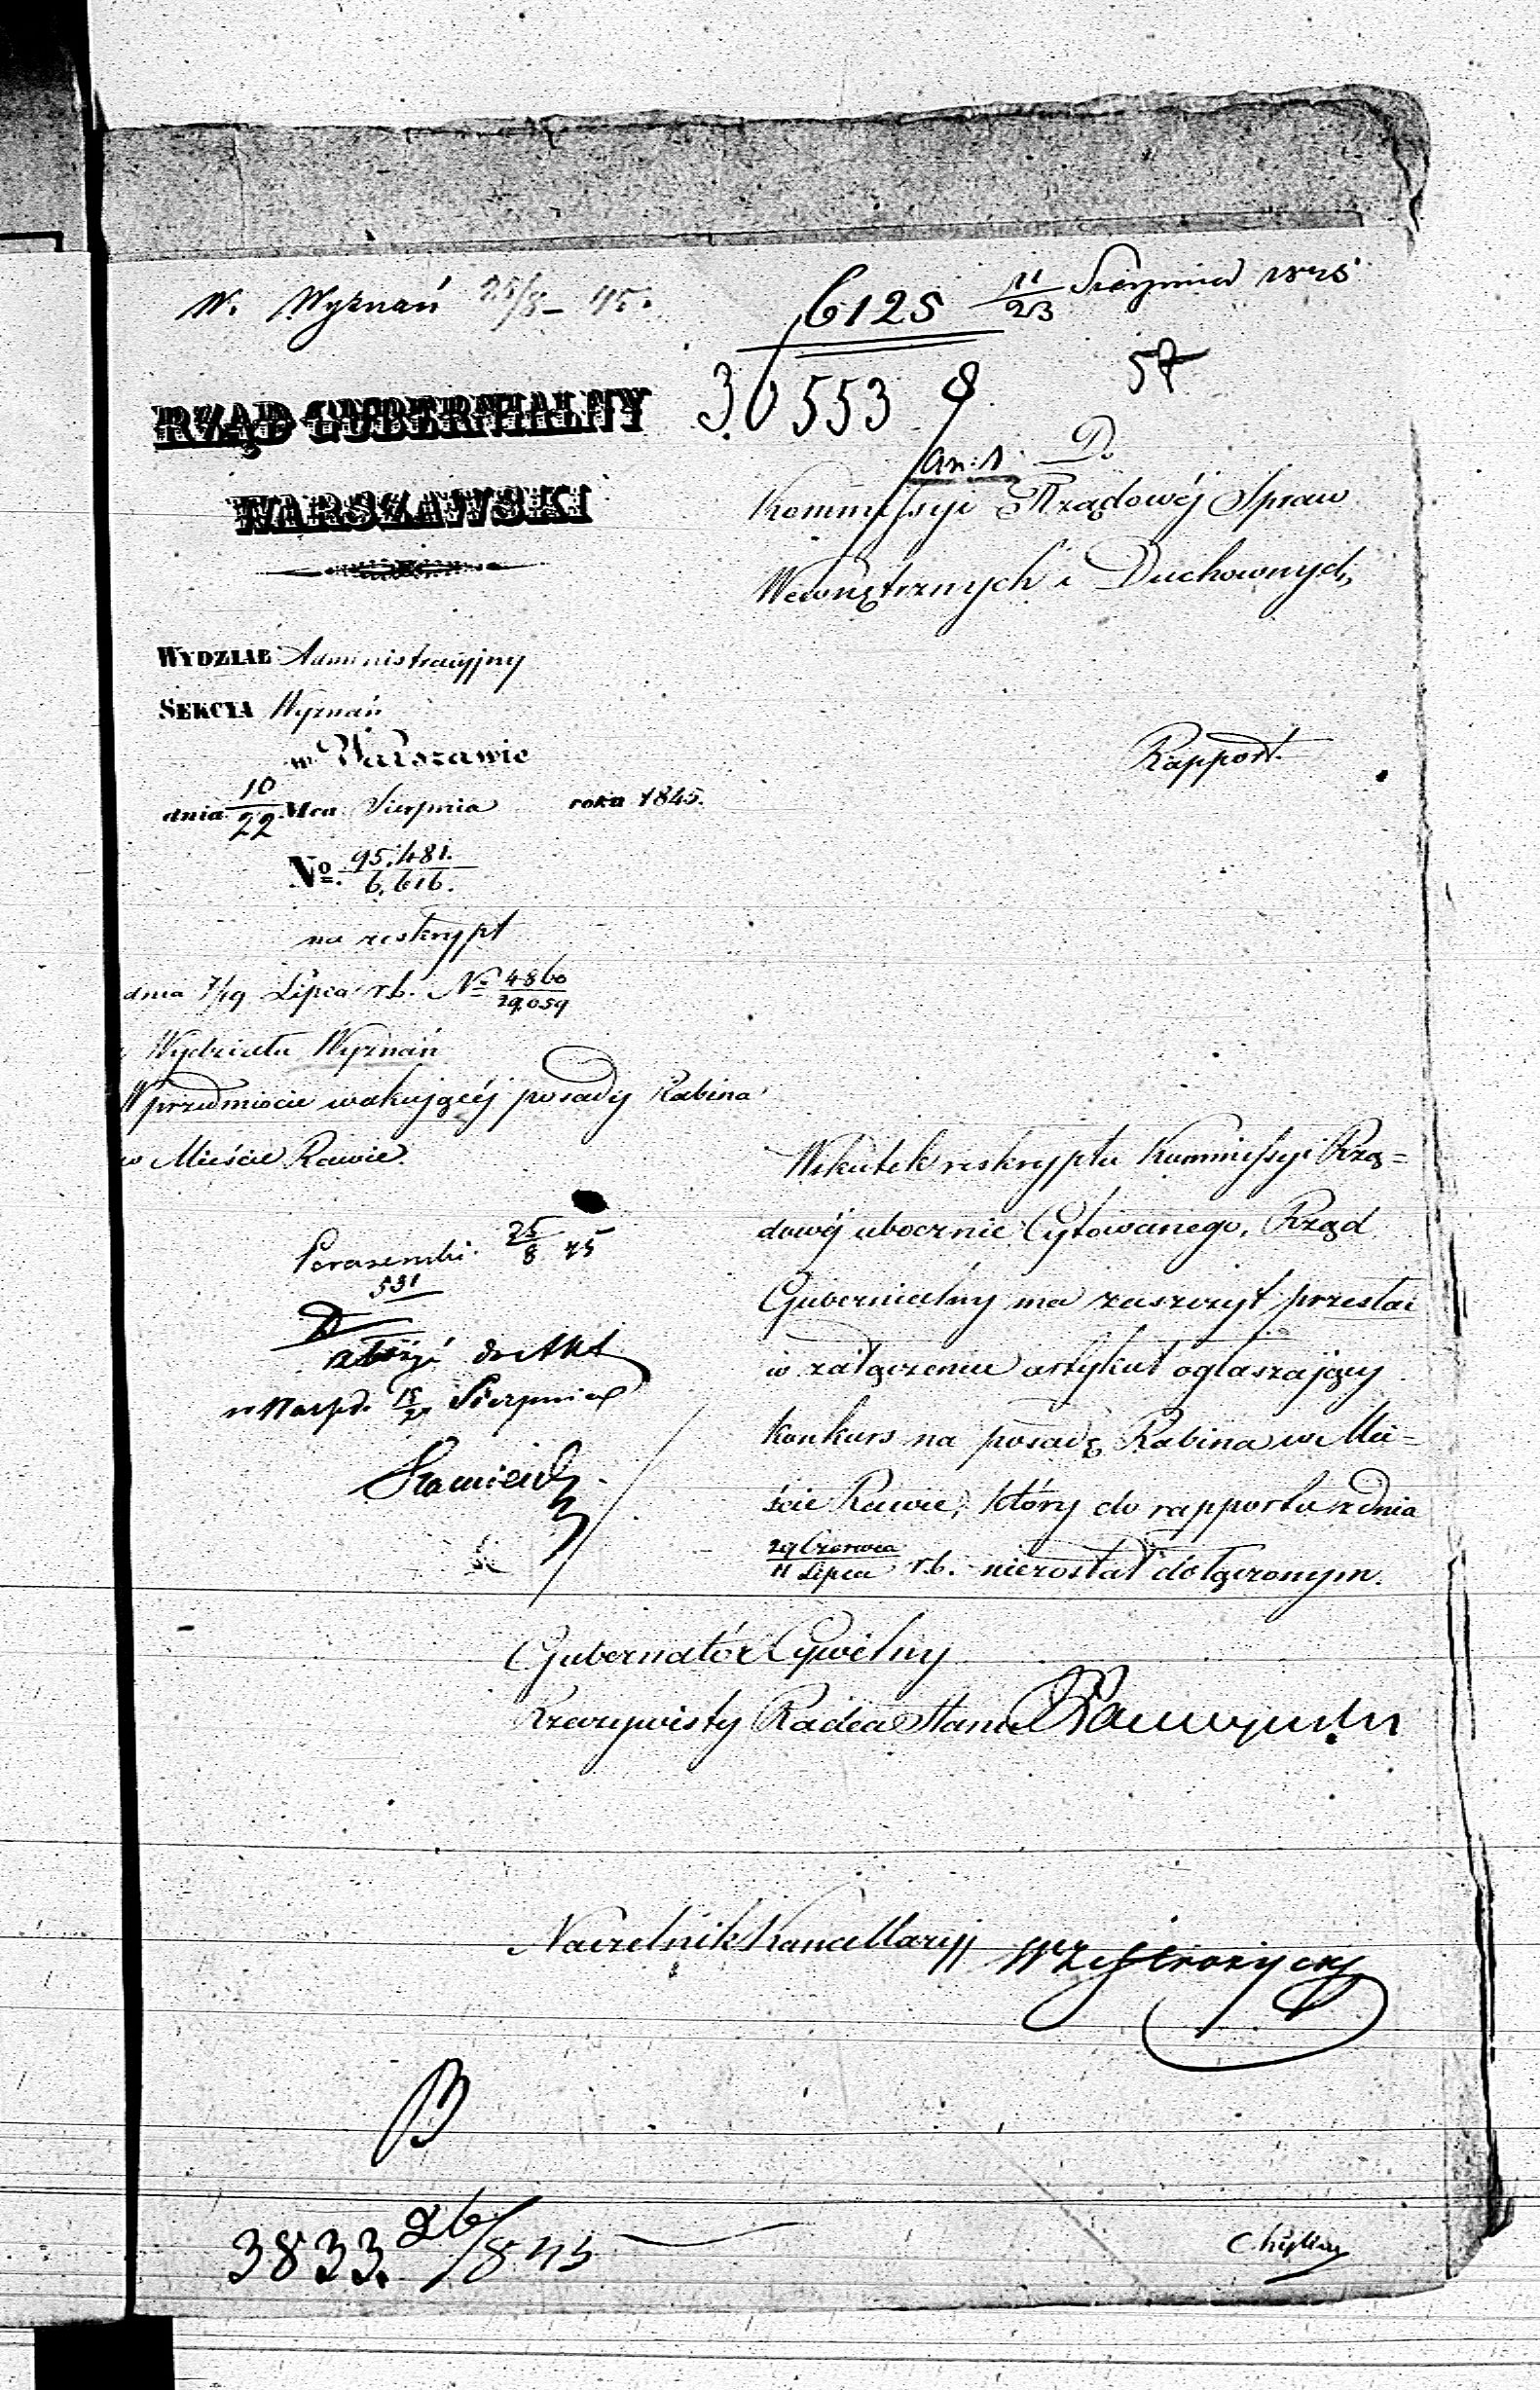 W. Wyznań 25/8 – 45.
6125 11/23 Sierpnia 1845
30553 8
57
RZĄD GUBERNIALNY
WARSZAWSKI
an: 1 Do
Kommissyi Rządowéj Spraw
Wewnętrznych i Duchownych
WYDZIAŁ Administracyjny
SEKCYA Wyznań
w Warszawie
Rapport.
dnia 10/22 Mca Sierpnia roku 1845.
No. 95,481./6,616.
na reskrypt
dnia 7/19 Lipca r.b. No 4860/29,059
Wydziału Wyznań
W przedmiocie wakującéj posady Rabina
w Mieście Rawie.
Wskutek reskryptu Kommissyi Rzą=
dowéj ubocznie Cytowanego, Rząd
Gubernialny ma zaszczyt przesłać
w załączeniu artykuł ogłaszający
Konkurs na posadę Rabina w Mie=
ście Rawie, który do rapportu z dnia
29 Czerwca/11 Lipca r.b. niezostał dołączonym.
25/8 45
531
złożyć do Akt
Sierpnia
Gubernator Cywilny
Rzeczywisty Radca Stanu
Naczelnik Kancellaryi
3833. 26/8 45